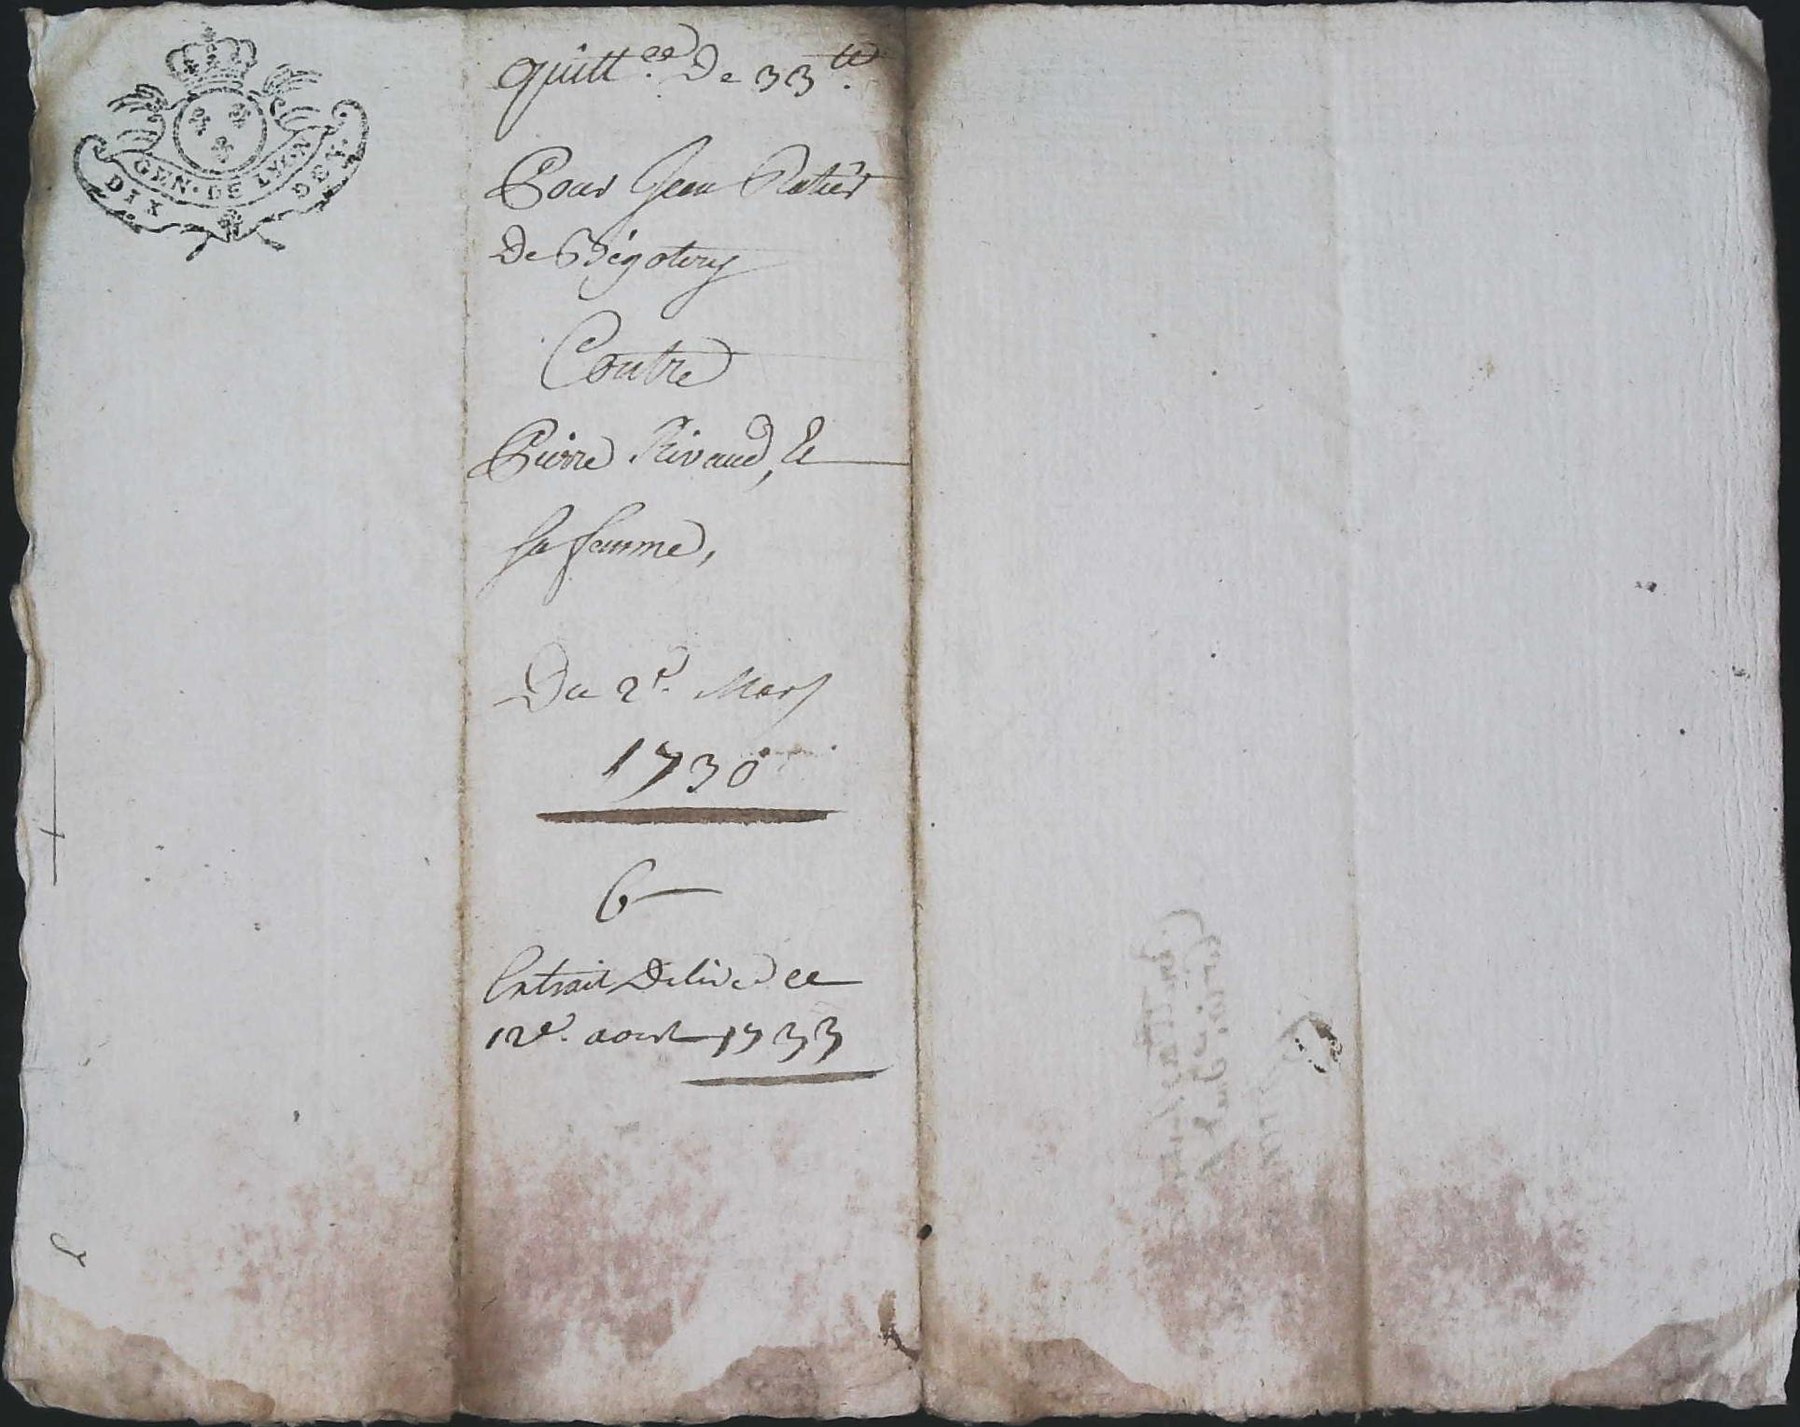 GEN. DE LYON
DIX DEN.
quitt.ce De 33 tt.
Pour Jean Ratier
De Bégotiry
Contre
Pierre Rivaud, &
sa femme,
Du 2e. Mars
1730
6
Extrait Delivré ce
12e. aoust 1733